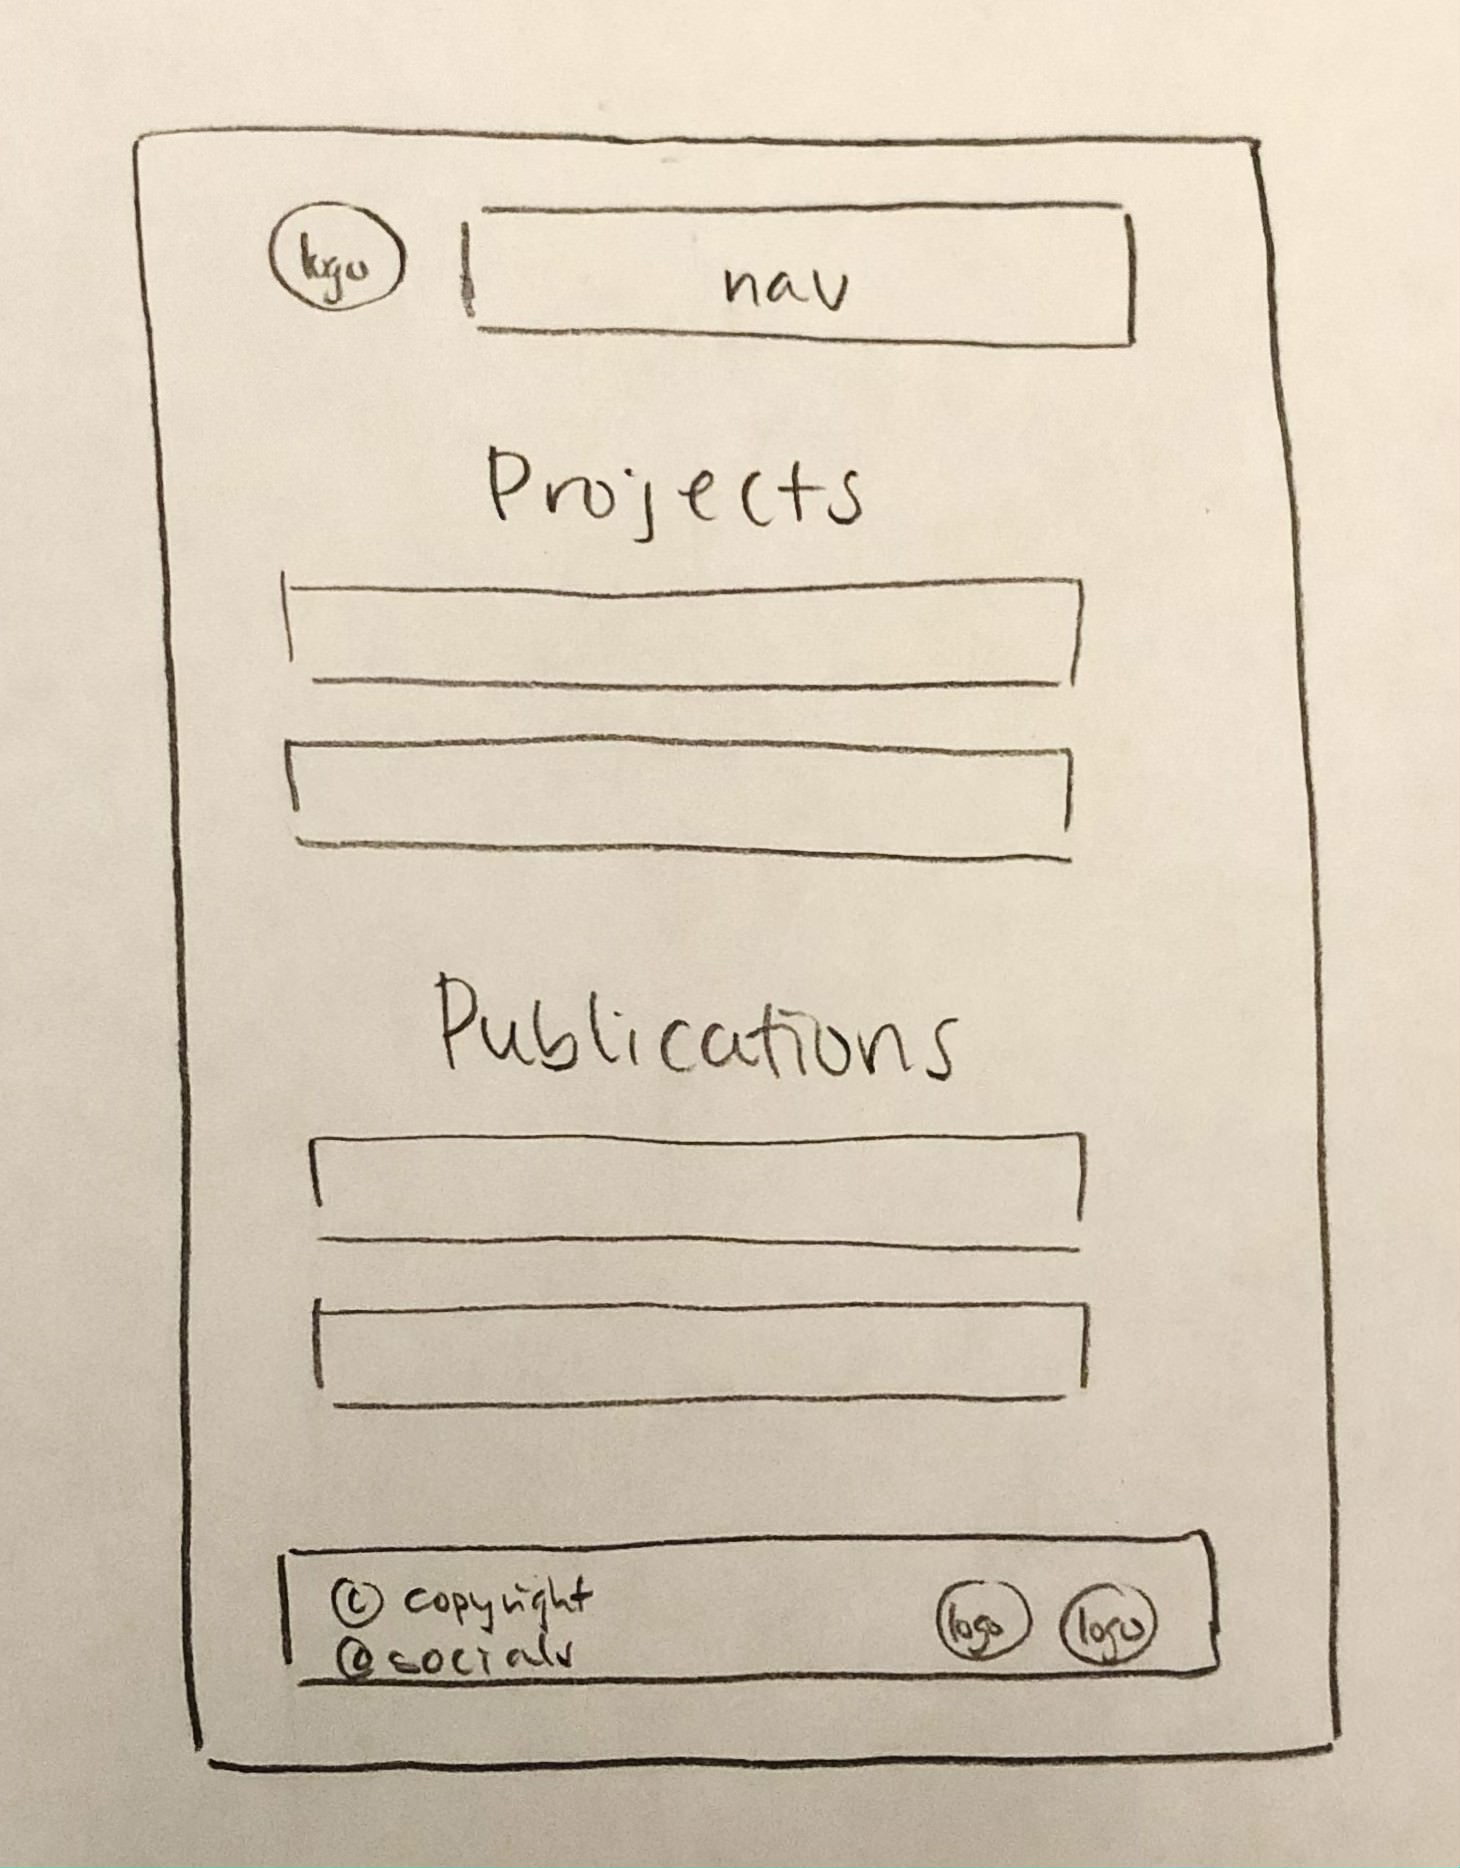 logo
nav
Projects
Publications
© copyright
@socials
logo logo